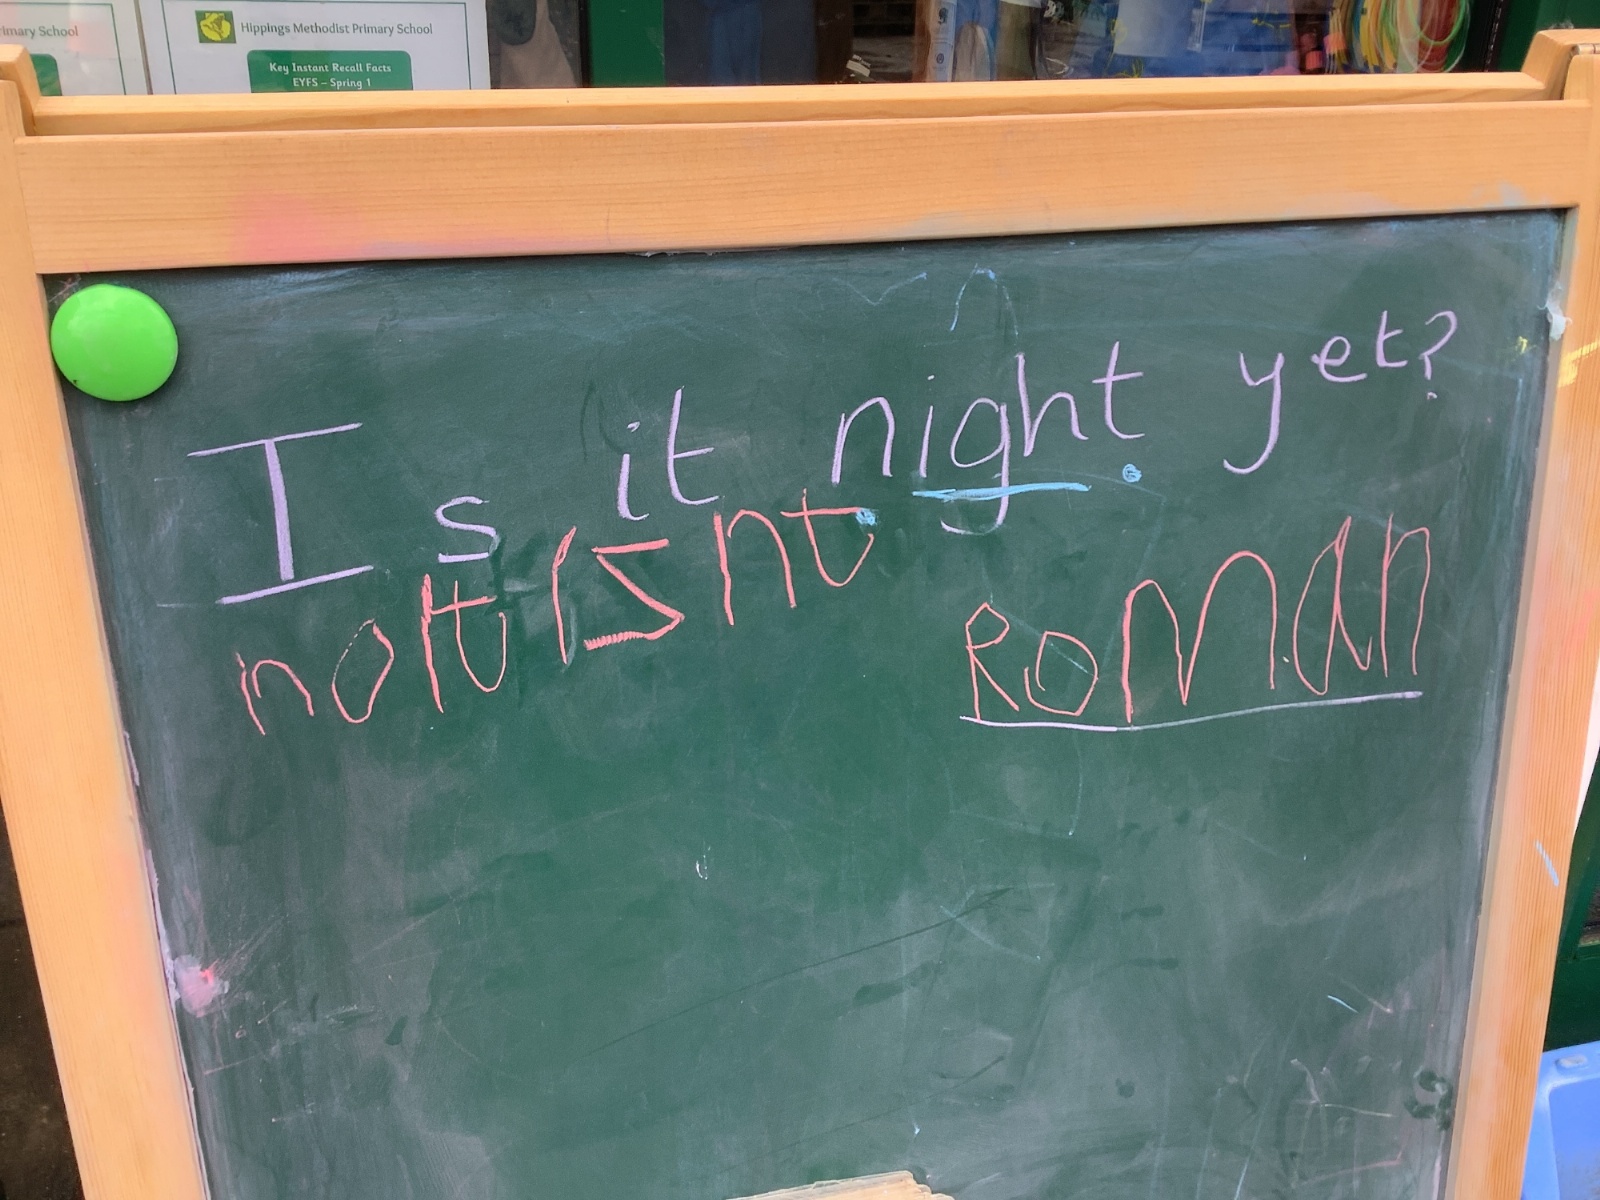 imary School
Hippings Methodist Primary School
Key Instant Recall Facts
EYFS – Spring 1
Is it night yet?
not isnt
Roman